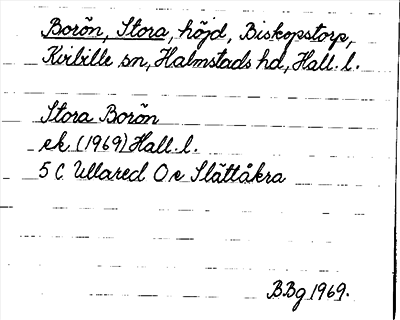 Borön, Stora, höjd, Biskopstorp,
Kvibille sn, Halmstads hd, Hall. l.
Stora Borön
ek (1969) Hall. l.
5 C Ullared O e Slättåkra
BBg 1969.